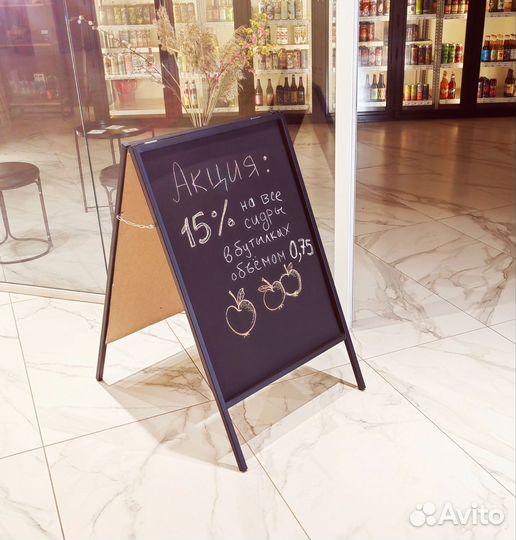 Акция:
15% на все
сидры
в бутылках
объёмом 0,75
Avito